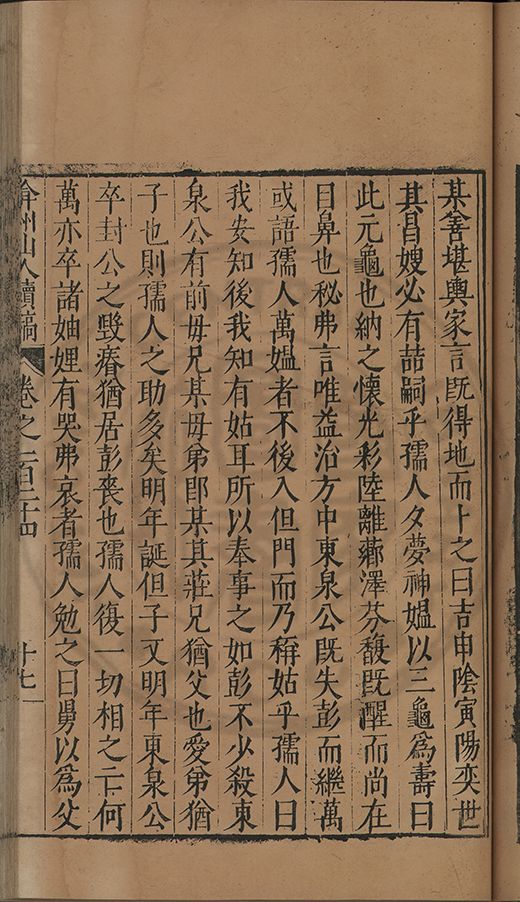 某善堪輿家言既得地而卜之曰吉申陰寅陽奕世
其昌嫂必有喆嗣乎孺人夕夢神媼以三龜為壽曰
此元龜也納之懷光彩陸離薌澤芬馥既醒而尚在
日鼻也秘弗言唯益治方中東泉公既失彭而繼萬
或語孺人萬媼者不後入但門而乃稱姑乎孺人曰
我安知後我知有姑耳所以奉事之如彭不少殺東
泉公有前毋兄某毋弟即某其莊兄猶父也愛弟猶
子也則孺人之助多矣明年誕但子又明年東泉公
卒封公之毀瘠猶居彭喪也孺人復一切相之亡何
萬亦卒諸妯娌有哭弗哀者孺人勉之曰舅以為父
弇州山人續稿 卷之一百二十四 十七